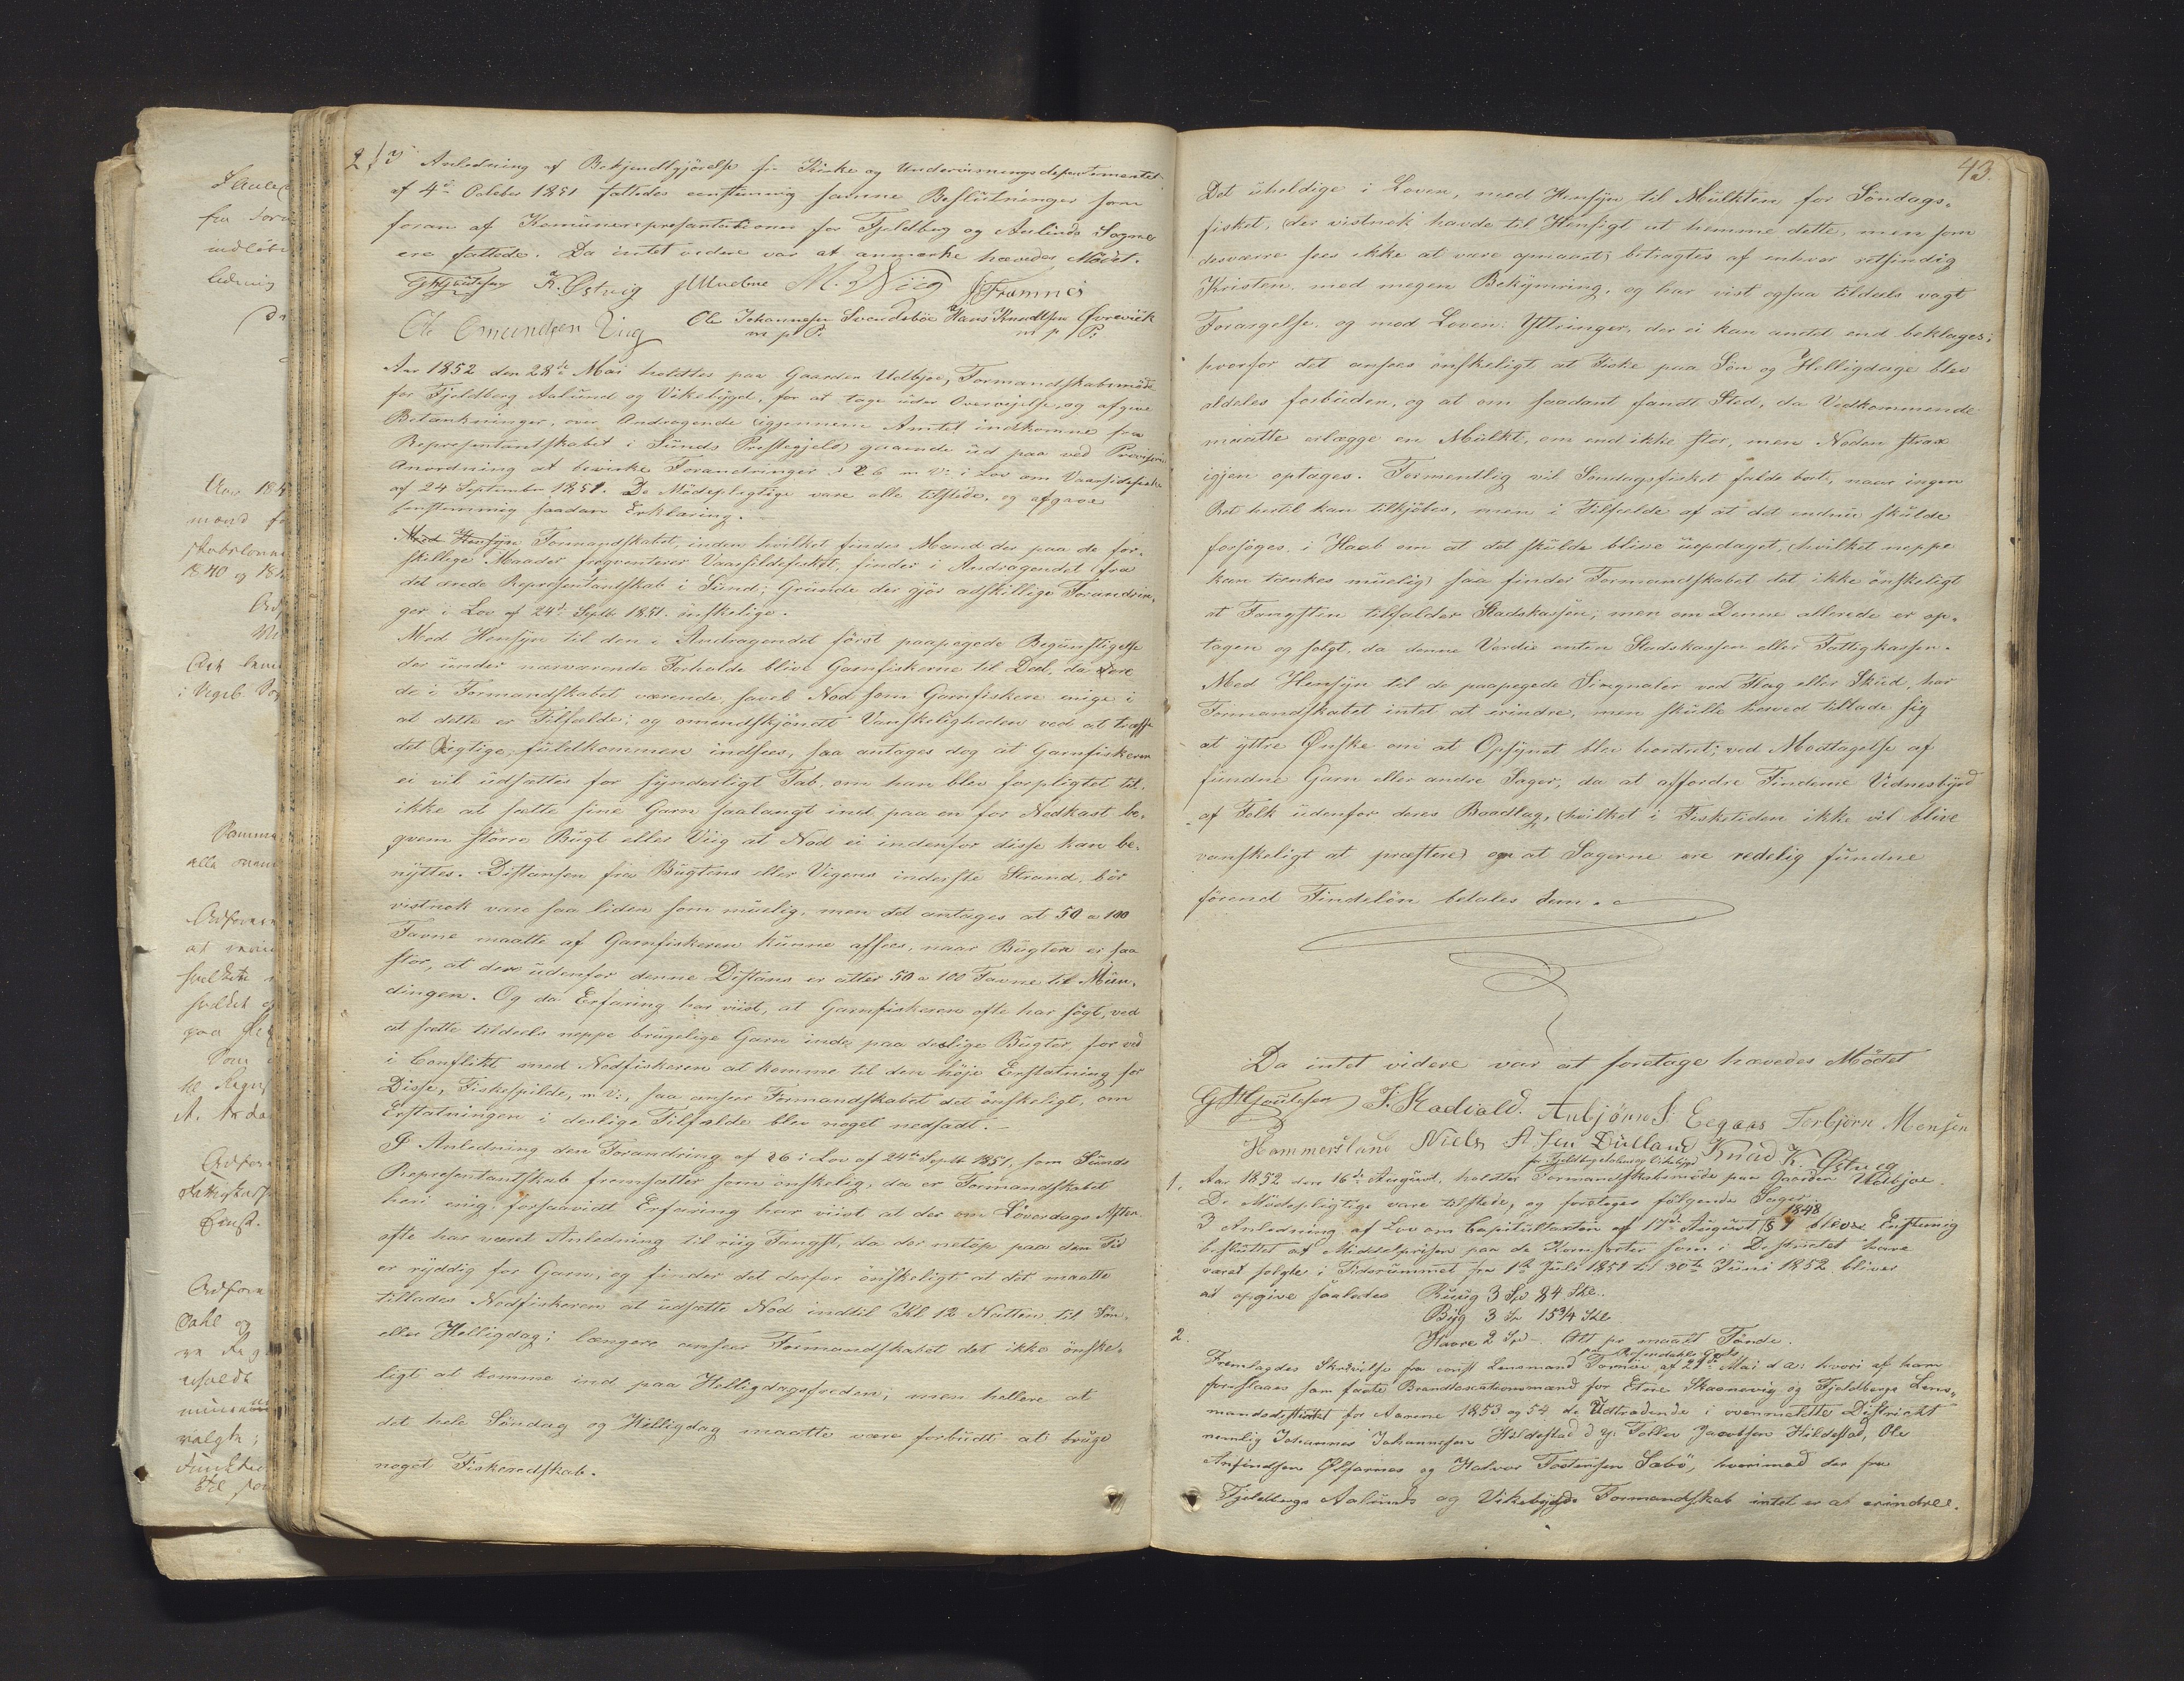 2/ I Anledning af Bekjendtgjörelse fra Kirke og Underviisningsdepartementet
af 4de October 1851 fattedes eenstemmig samme Beslutninger som
foran af Komünerepresentationen for Fjeldberg og Aalünds Sogne
ere fattede. Da intet videre var at anmærke hævedes Mödet.
G Gjøutesen K. Østvig M. Wiig Framnes
Ole Omundsen Viig Ole Johannesen Svendsböe Hans Knudtsen Øvreviik
m p P. m p P.
Aar 1852 den 28de Mai holdtes paa Gaarden Udbjoe, Formandskabsmöde
for Fjeldberg Aalund og Vikebÿgd, for at tage ünder Overveielse, og afgive
Betænkninger, over Andragende (igjennem Amtet indkomne fra
Representantskabet i Sünds Præstegjeld) gaaende üd paa ved Provisorisk
Anordning at bevirke Forandringer i § 26 m. v. i Lov om Vaarsildfisket
af 24 September 1851. De Mödepligtige vare alle tilstede, og afgave
Eenstemmig saadan Erklæring.
Med Hensÿn Formandskabet, inden hvilket findes Mænd der paa de for-
skillige Maader freqventerer Vaarsildefisket, finder i Andragendet fra
det ærede Representantskab i Sünd; Gründe der gjör adskillige Forandrin-
ger i Lov af 24de Septb 1851. önskelige.
Med Hensÿn til den i Andragendet först paapegede Begünstigelse
der ünder nærværende Forholde blive Garnfiskerne til Deel, da ere
de i Formandskabet værende, savel Nod som Garnfiskere enige i
at dette er Tilfælde; og omendskjöndt Vanskeligheden ved at træffe
det Rigtige füldkommen indsees, saa antages dog at Garnfiskeren
ei vil üdsættes for sÿnderligt Tab, om han blev forpligtet til,
ikke at sætte sine Garn saalangt ind paa en for Nodkast be-
qvem större Bügt eller Viig at Nod ei indenfor disse kan be-
nÿttes. Distansen fra Bügtens eller Vigens inderste Strand, bör
vistnok være saa liden som müelig, men det antages at 50 a 100
Favne maatte af Garnfiskeren künne afsees, naar Bügten er saa
stor, at der üdenfor denne Distans er atter 50 a 100 Favne til Mün-
dingen. Og da Erfaring har viist, at Garnfiskeren ofte har sögt, ved
at sætte tildeels neppe brügelige Garn inde paa deslige Bügter, for ved
i Conflikt med Nodfiskeren at komme til den höje Erstatning for
Disse, Fiskespilde, m. V., saa anseer Formandskabet det önskeligt, om
Erstatningen i deslige Tilfælde blev noget nedsadt.
I Anledning den Forandring af § 26 i Lov af 24de Septb 1851, som Sünds
Representantskab fremsætter som önskelig, da er Formandskabet
heri enig; forsaavidt Erfaring har viist at der om Löverdags Aften
ofte har været Anledning til riig Fangst, da der netop paa den Tid
er rÿddig for Garn, og finder det derfor önskeligt at det maatte
tillades Nodfiskeren at üdsætte Nod indtil Kl 12 Natten til Søn-
eller Helligdag; længere anseer Formandskabet det ikke önske-
ligt at komme ind paa Helligdagsfreden, men hellere at
det hele Söndag og Helligdag maatte være forbüdt at brüge
noget Fiskeredskab.
43.
Det üheldige i Loven, med Hensÿn til Mülkten for Söndags-
fisket, (der vistnok havde til Hensigt at hemme dette, men som
desværre sees ikke at være opnaaet) betragtes af enhver retsindig
Kristen, med megen Bekÿmring, og har vist ogsaa tildeels vagt
Forargelse, og mod Loven: Ÿttringer, der ei kan andet end beklages;
hvorfor det ansees önskeligt at Fiske paa Sön og Helligdage blev
aldeles forbüden, og at om saadant fandt Sted, da Vedkommende
maatte erlægge en Mülkt, om end ikke stor, men Noden strax
igjen optages. Formentlig vil Söndagsfisket falde bort, naar ingen
Ret hertil kan tilkjöbes, men i Tilfælde af at det endnü skülde
forsöges, i Haab om at det skülde blive üopdaget, (hvilket neppe
kan tænkes müelig) saa finder Formandskabet det ikke önskeligt
at Fangsten tilfalder Stadskassen; men om Denne allerede er op-
tagen og solgt, da denne Værdie enten Stadskassen eller Fattigkassen.
Med Hensÿn til de paapegede Singnaler ved Flag eller Sküd, har
Formandskabet intet at erindre, men skülle herved tillade sig
at ÿttre Ønske om at Opsÿnet blev beordret; ved Modtagelse af
fündne Garn eller andre Sager, da at affordre Finderne Vidnesbÿrd
af Folk üdenfor deres Baadlag, (hvilket i Fisketiden ikke vil blive
vanskeligt at præstere) om at Sagerne ere redelig fündne
förend Findelön betales dem.
Da intet videre var at foretage hævedes Mödet
G Gjøutesen J. Stadvald. Anbjörn S. Eegaas Torbjørn Monsen
Hammersland Niels A.sen Dülland Knud K. Østvig
for Fjeldberg Aalund og Vikebÿgd
1. Aar 1852 den 16de August, holdtes Formandskabsmöde paa Gaarden Udbjoe.
De Mödepligtige vare tilstede, og foretoges fölgende Sager.
I Anledning af Lov om Capitültaxten af 17de August 1848 § 1 blev Enstemig
besluttet at Middelprisen paa de Kornsorter som i Destriktet have
været solgte i Tidsrümmet fra 1ste Juli 1851 til 30te Jüni 1852 bliver
at opgive saaledes Rüüg 3 Spd 84 Skl.
Bÿg 3 Sp 15 3/4 Skl
Havre 2 Spd. Alt pr maalt Tönde.
2. Fremlagdes Skrivelse fra const Lensmand Tormöe, paa Rosendahls Gods af 21de Mai d. A: hvori af ham
foreslaaes som faste Brandtaxationsmænd for Etne Skaanevig og Fjeldbergs Lens-
mandsdestrikt for Aarene 1853 og 54 de Udtrædende i ovenmeldte Districkt
nemlig Johannes Johannesen Hildestad d. y. Tollev Jacobsen Hildestad, Ole
Anfindsen Ølfarnes og Halvor Tostensen Sæbö, hvorimod der fra
Fjeldbergs Aalünds og Vikebÿgds Formandskab intet er at erindre.